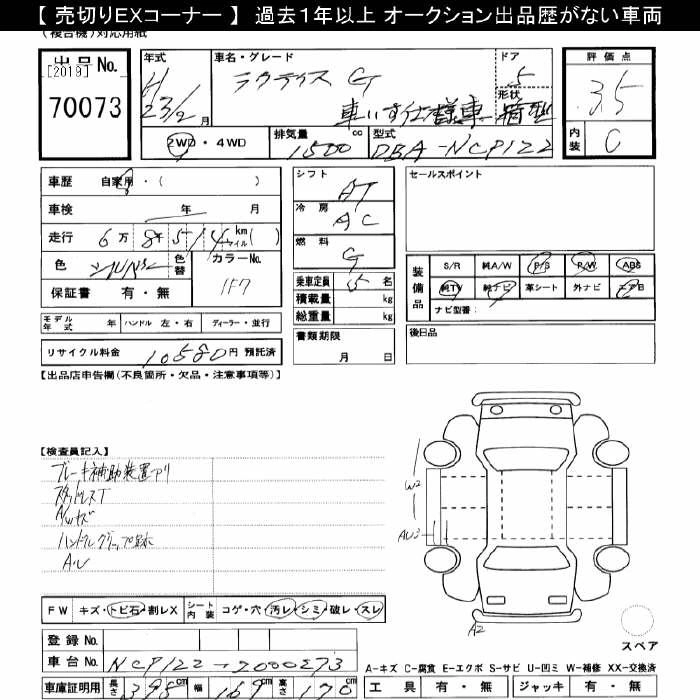 【 売切りEXコーナー 】 過去1年以上 オークション出品歴がない車両
(複合機)対応用紙
出品No.
[2019]
70073
年式
H
23/2 月
車名・グレード
ラクティス G
車いす仕様車
ドア
5
形状
箱型
2WD・4WD
排気量
1500 cc
型式
DBA-NCP122
評価点
3.5
内装
C
車歴 自家用・( )
車検 年 月
走行 6万8千514 km マイル( )
色 シルバー
色替
カラーNo.
1F7
保証書 有・無
モデル年式 年
ハンドル 左・右
ディーラー・並行
リサイクル料金 10580円 預託済
シフト
AT
冷房
AC
燃料
G
乗車定員 5 名
積載量 kg
総重量 kg
書類期限
月 日
セールスポイント
装備品
S/R 純A/W P/S P/W ABS
純TV 純ナビ 革シート 外ナビ エアB
ナビ型番:
後日品
【出品店申告欄(不良箇所・欠品・注意事項等)】
【検査員記入】
ブレーキ補助装置アリ
スタッドレスT
A/Wキズ
A・U
W2
AU3
A2
FW キズ・トビ石・割レX
シート内装 コゲ・穴・汚レ・シミ・破レ・スレ
登録No.
車台No. NCP122-2000273
車庫証明用 長さ 395 cm 幅 169 cm 高さ 170 cm
スペア
A-キズ C-腐食 E-エクボ S-サビ U-凹ミ W-補修 XX-交換済
工具 有・無 ジャッキ 有・無